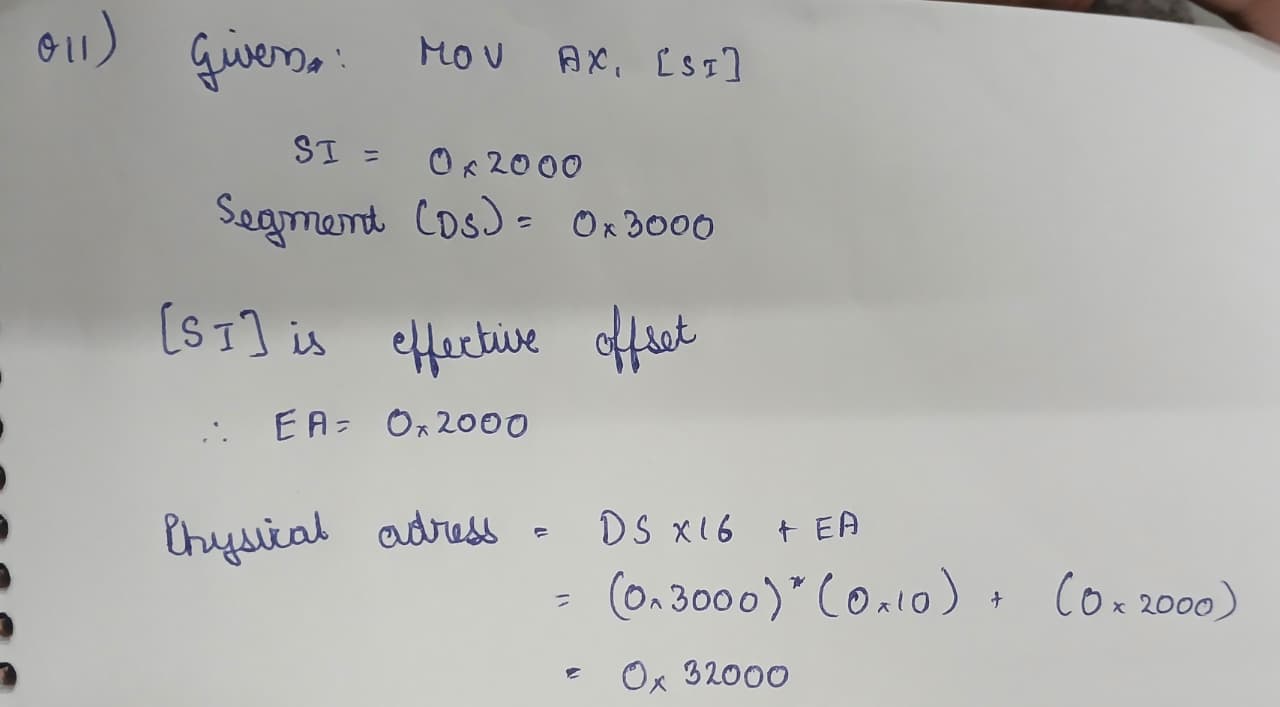 Q11) Given: MOV AX, [SI]
SI = 0x2000
Segment (DS) = 0x3000
[SI] is effective offset
∴ EA = 0x2000
Physical adress = DS x16 + EA
= (0x3000)*(0x10) + (0x2000)
= 0x 32000